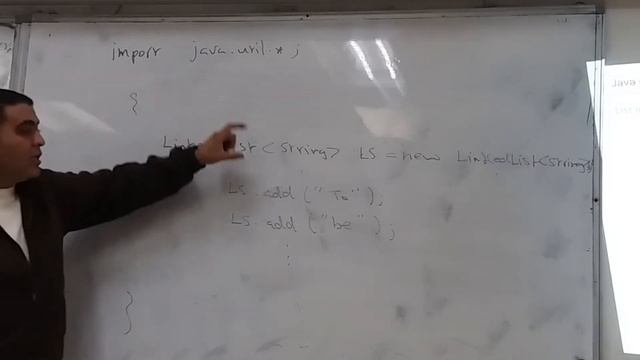 import java.util.*;
{
LinkedList<String> LS = new LinkedList<String>
LS.add("To");
LS.add("be");
⋮
}
Java